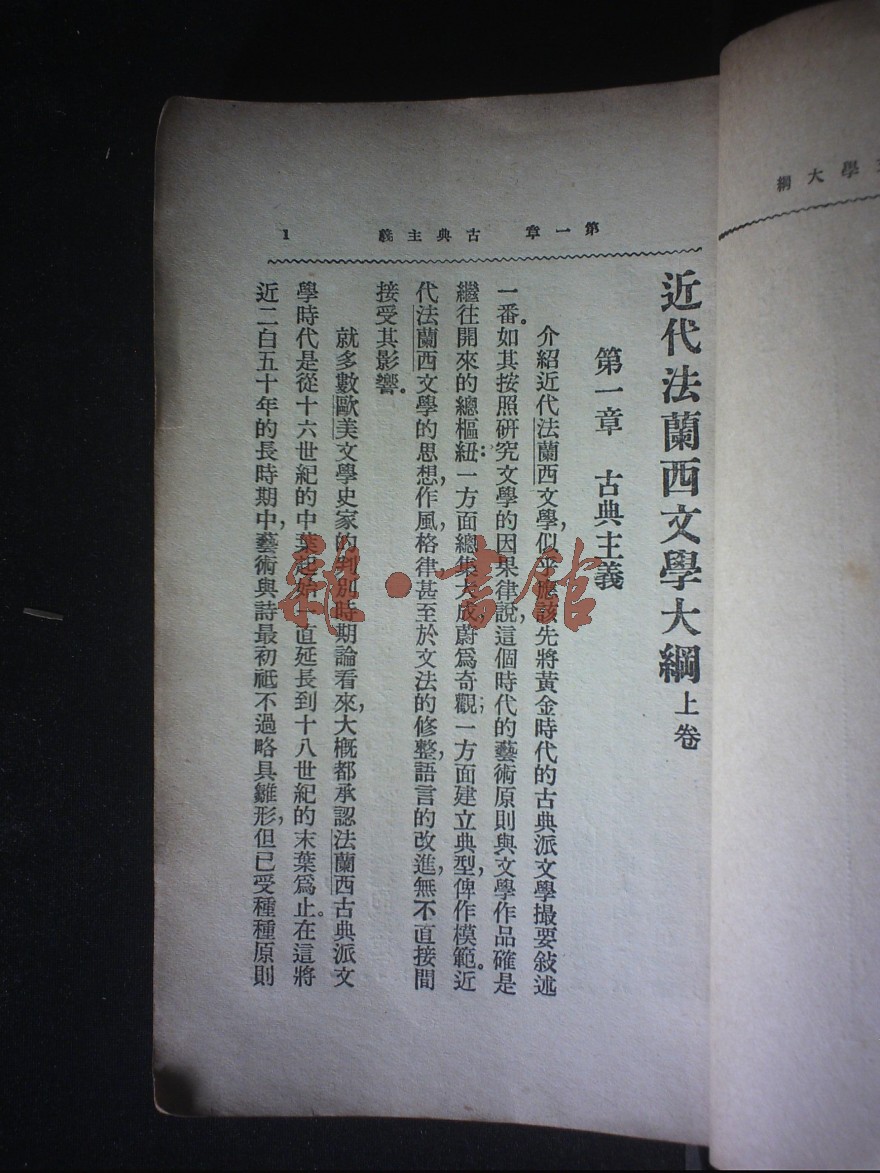 第一章 古典主義 1
近代法蘭西文學大綱 上卷
第一章 古典主義
介紹近代法蘭西文學,似乎應該先將黃金時代的古典派文學撮要敍述
一番。如其按照研究文學的因果律說,這個時代的藝術原則與文學作品確是
繼往開來的總樞紐:一方面總集大成,蔚爲奇觀;一方面建立典型,俾作模範。近
代法蘭西文學的思想,作風,格律甚至於文法的修整,語言的改進,無不直接間
接受其影響。
就多數歐美文學史家的判別時期論看來,大槪都承認法蘭西古典派文
學時代是從十六世紀的中葉起始一直延長到十八世紀的末葉爲止。在這將
近二百五十年的長時期中,藝術與詩最初祗不過略具雛形,但已受種種原則
學大綱
雜·書館